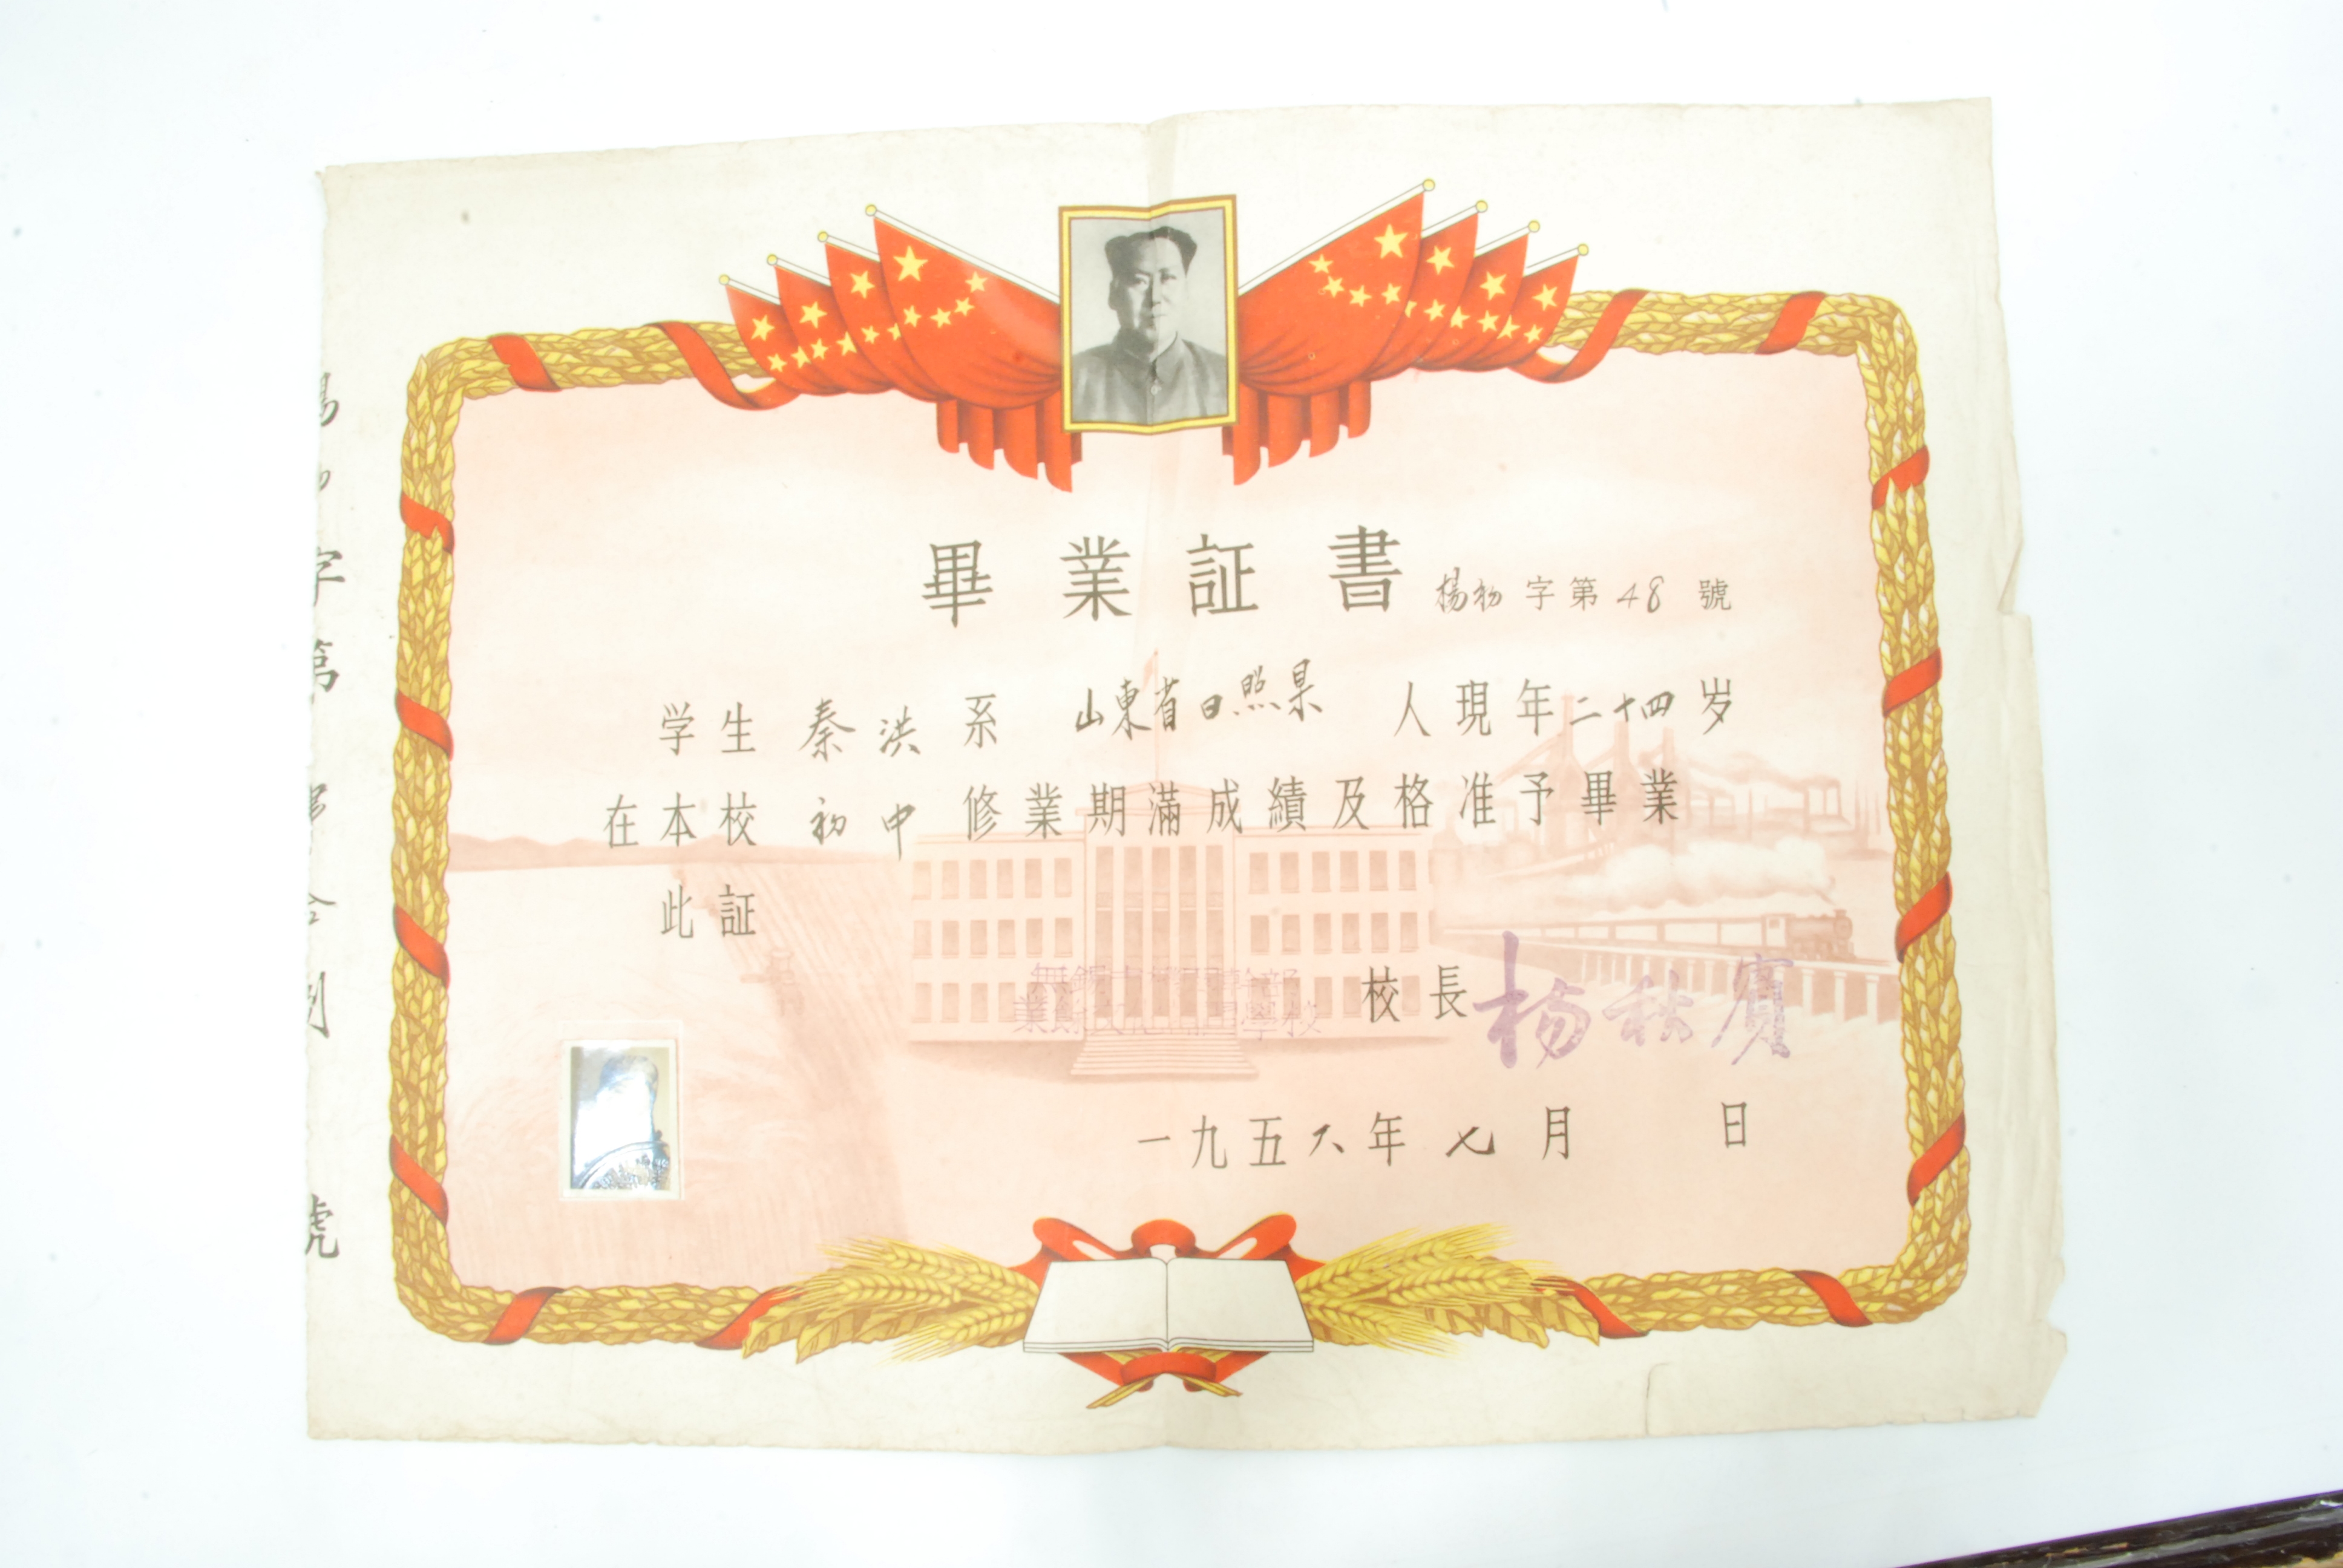 畢業証書 楊初字第48號
学生秦洪系山東省日照県人現年二十四岁
在本校初中修業期滿成績及格准予畢業
此証
無錫市 幹部
業餘文 學校
校長 楊秋賓
一九五六年七月 日
字第 號